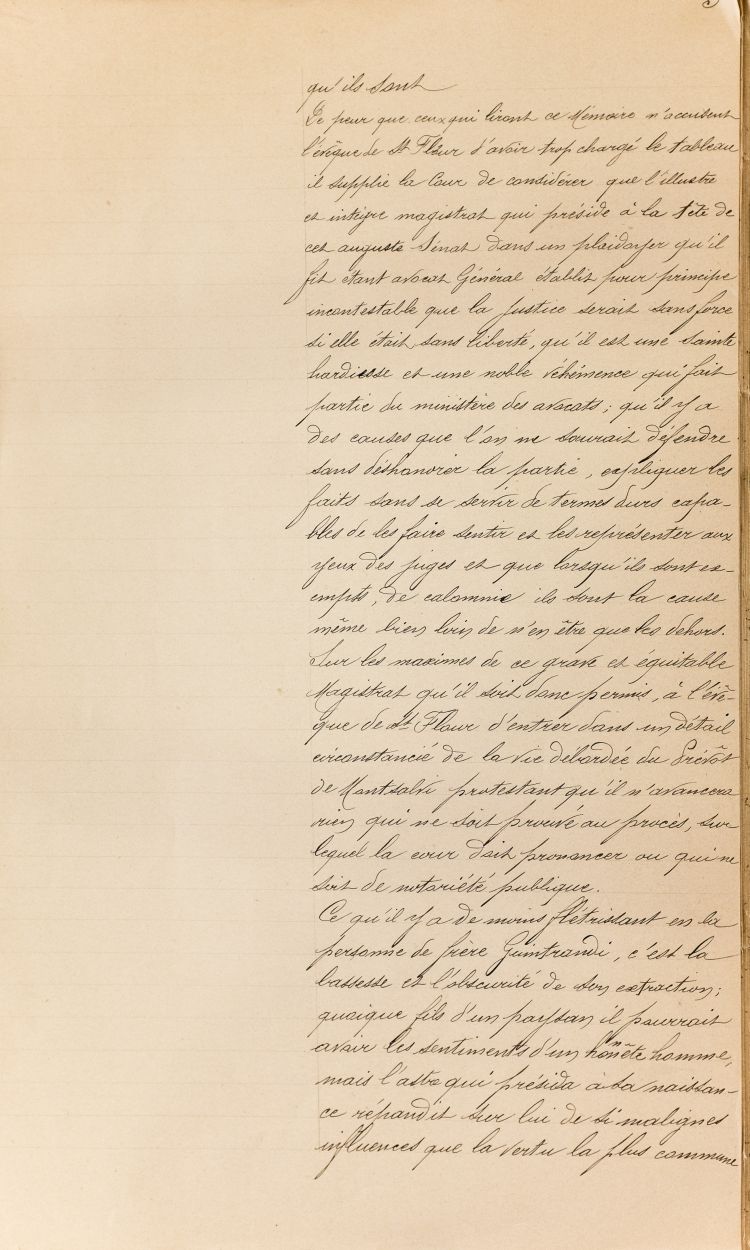 qu'ils sont
De peur que ceux qui liront ce Mémoire n'accusent
l'évêque de St Flour d'avoir trop chargé le tableau
il supplie la Cour de considérer que l'illustre
et intègre magistrat qui préside à la tête de
cet auguste Sénat dans un plaidoyer qu'il
fit étant avocat Général établit pour principe
incontestable que la justice serait sans force
si elle était sans liberté, qu'il est une sainte
hardiesse et une noble véhémence qui fait
partie du ministère des avocats; qu'il y a
des causes que l'on ne saurait défendre
sans déshonorer la partie, expliquer les
faits sans se servir de termes durs capa-
bles de les faire sentir et les représenter aux
yeux des juges et que lorsqu'ils sont ex-
empts, de calomnie ils sont la cause
même bien loin de n'en être que les dehors.
Sur les maximes de ce grave et équitable
Magistrat qu'il soit donc permis, à l'évê-
que de St Flour d'entrer dans un détail
circonstancié de la vie débordée du Prévôt
de Montsalvi protestant qu'il n'avancera
rien qui ne soit prouvé au procès, sur
lequel la cour doit prononcer ou qui ne
soit de notoriété publique.
Ce qu'il y a de moins flétrissant en la
personne de frère Guintrandi, c'est la
bassesse et l'obscurité de son extraction;
quoique fils d'un paysan il pourrait
avoir les sentiments d'un honnête homme,
mais l'astre qui présida à sa naissan-
ce répandit sur lui de si malignes
influences que la vertu la plus commune